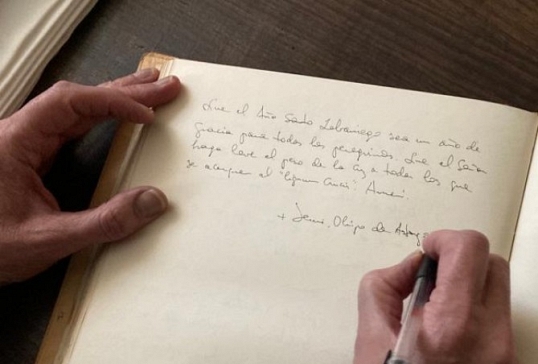 Que el Año Santo Lebaniego sea un año de
gracia para todos los peregrinos. Que el Señor
haga leve el peso de la Cruz a todos los que
se acerquen al "Lignum Crucis". Amén.
+ Jesús, Obispo de Astorga